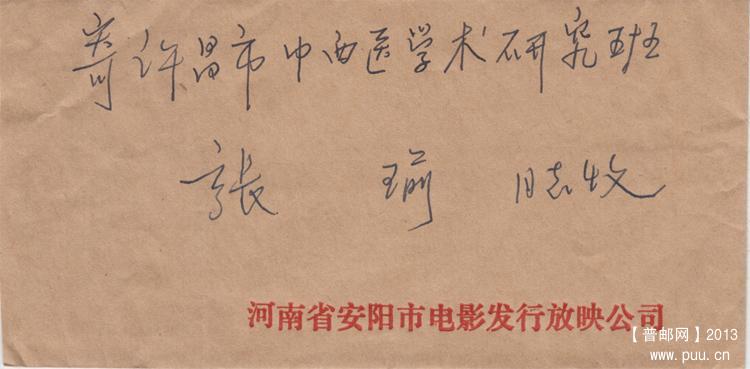 寄许昌市中西医学术研究班
张 瑜 同志收
河南省安阳市电影发行放映公司
【普邮网】2013
www.puu.cn